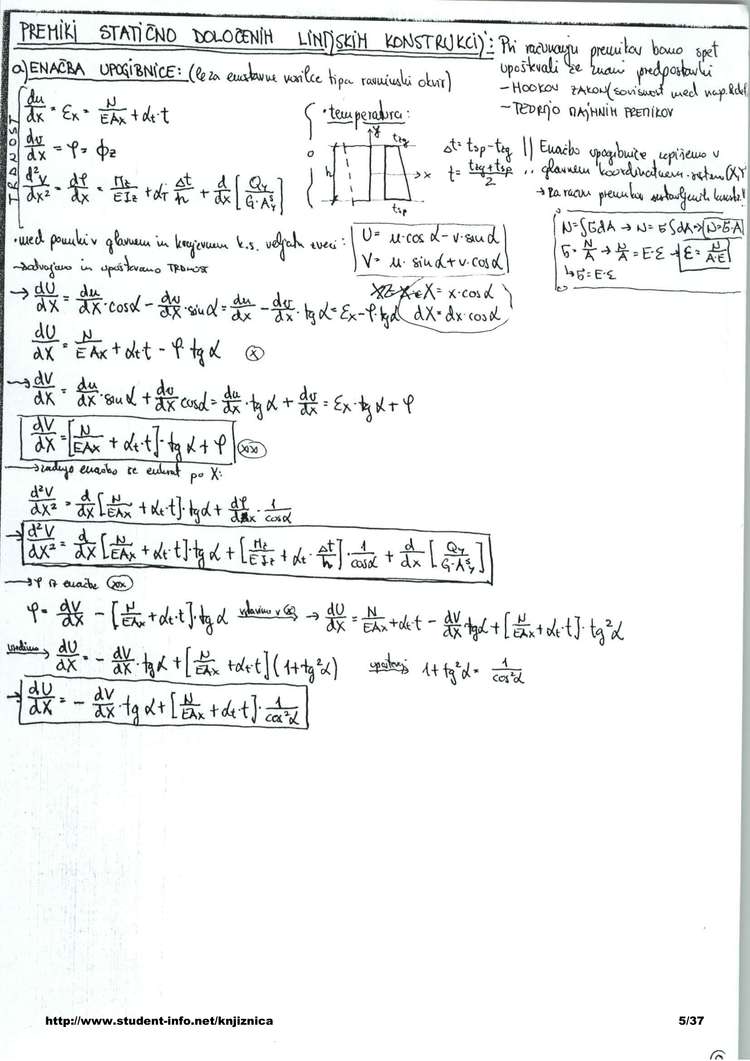 PREMIKI STATIČNO DOLOČENIH LINIJSKIH KONSTRUKCIJ:
Pri računanju premikov bomo spet
upoštevali že znani predpostavki
- HOOKOV ZAKON (sovisnost med nap. & def.
- TEORIJO MAJHNIH PREMIKOV
a) ENAČBA UPOGIBNICE: (le za enostavne nosilce tipa ravninski okvir)
TRDNOST
du/dx = εx = N/EAx + αt·t
dv/dx = φ = ϕz
d²v/dx² = dφ/dx = Mz/EIz + αT Δt/h + d/dx [Qy/G·Aˢy]
• temperatura:
y
tzg
0
h
x
tsp
Δt = tsp - tzg
t = (tzg + tsp)/2
|| Enačbo upogibnice zapišemo v
glavnem koordinatnem sistem (X,Y
→ za račun premikov sestavljenih konst.!
N = ∫σdA → N = σ∫dA → N = σ·A
σ = N/A → N/A = E·ε → ε = N/A·E
↳ σ = E·ε
• med pomiki v glavnem in krajevnem k.s. veljata zvezi:
U = u·cos α - v·sin α
V = u·sin α + v·cos α
→ odvajamo in upoštevamo TRDNOST
→ dU/dX = du/dX·cosα - dv/dX·sinα = du/dx - dv/dx·tgα = εx - φ·tgα
X = x·cosα
dX = dx·cosα
dU/dX = N/EAx + αt·t - φ tgα (x)
→ dV/dX = du/dX·sinα + dv/dX cosα = du/dx·tgα + dv/dx = εx·tgα + φ
dV/dX = [N/EAx + αt·t]·tgα + φ (xx)
→ zadnjo enačbo še enkrat po X:
d²V/dX² = d/dX [N/EAx + αt·t]·tgα + dφ/dx·1/cosα
→ d²V/dX² = d/dX [N/EAx + αt·t]·tgα + [Mz/EIz + αt·Δt/h]·1/cosα + d/dx [Qy/G·Aˢy]
→ φ iz enačbe (xx)
φ = dV/dX - [N/EAx + αt·t]·tgα vstavimo v (x) → dU/dX = N/EAx + αt·t - dV/dX·tgα + [N/EAx + αt·t]·tg²α
uredimo → dU/dX = - dV/dX·tgα + [N/EAx + αt·t](1+tg²α) 1+tg²α = 1/cos²α
→ dU/dX = - dV/dX·tgα + [N/EAx + αt·t]·1/cos²α
http://www.student-info.net/knjiznica
5/37